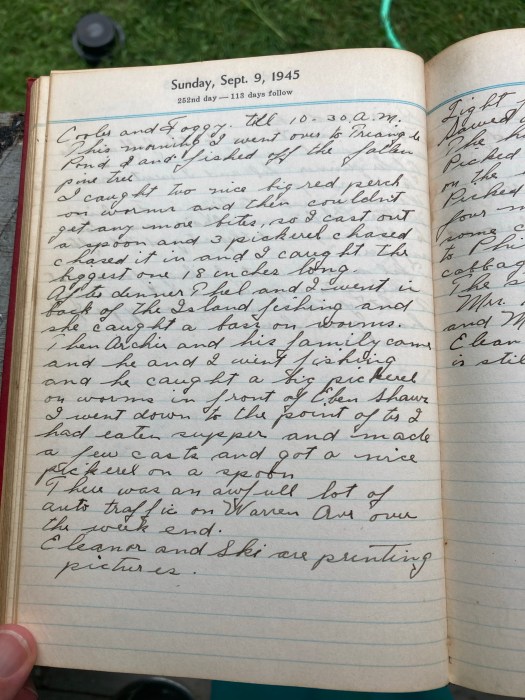 Sunday, Sept. 9, 1945
252nd day — 113 days follow
Cooler and Foggy. till 10-30 A.M.
This morning I went over to Triangle
Pond and fished off the fallen
pine tree
I caught two nice big red perch
on worms and then couldn't
get any more bites, so I cast out
a spoon and 3 pickerel chased
chased it in and I caught the
biggest one 18 inches long.
After dinner Phel and I went in
back of the Island fishing and
she caught a bass on worms.
Then Archie and his family came
and he and I went fishing
and he caught a big pickerel
on worms in front of Eben Shaws
I went down to the point after I
had eaten supper and made
a few casts and got a nice
pickerel on a spoon
There was an awfull lot of
auto traffic on Warren Ave over
the week end.
Eleanor and Ski are printing
pictures.
Light
The
Picked
on the
Picked
four
some
to
cabbag
The s
Mrs.
and
Elean
is stil